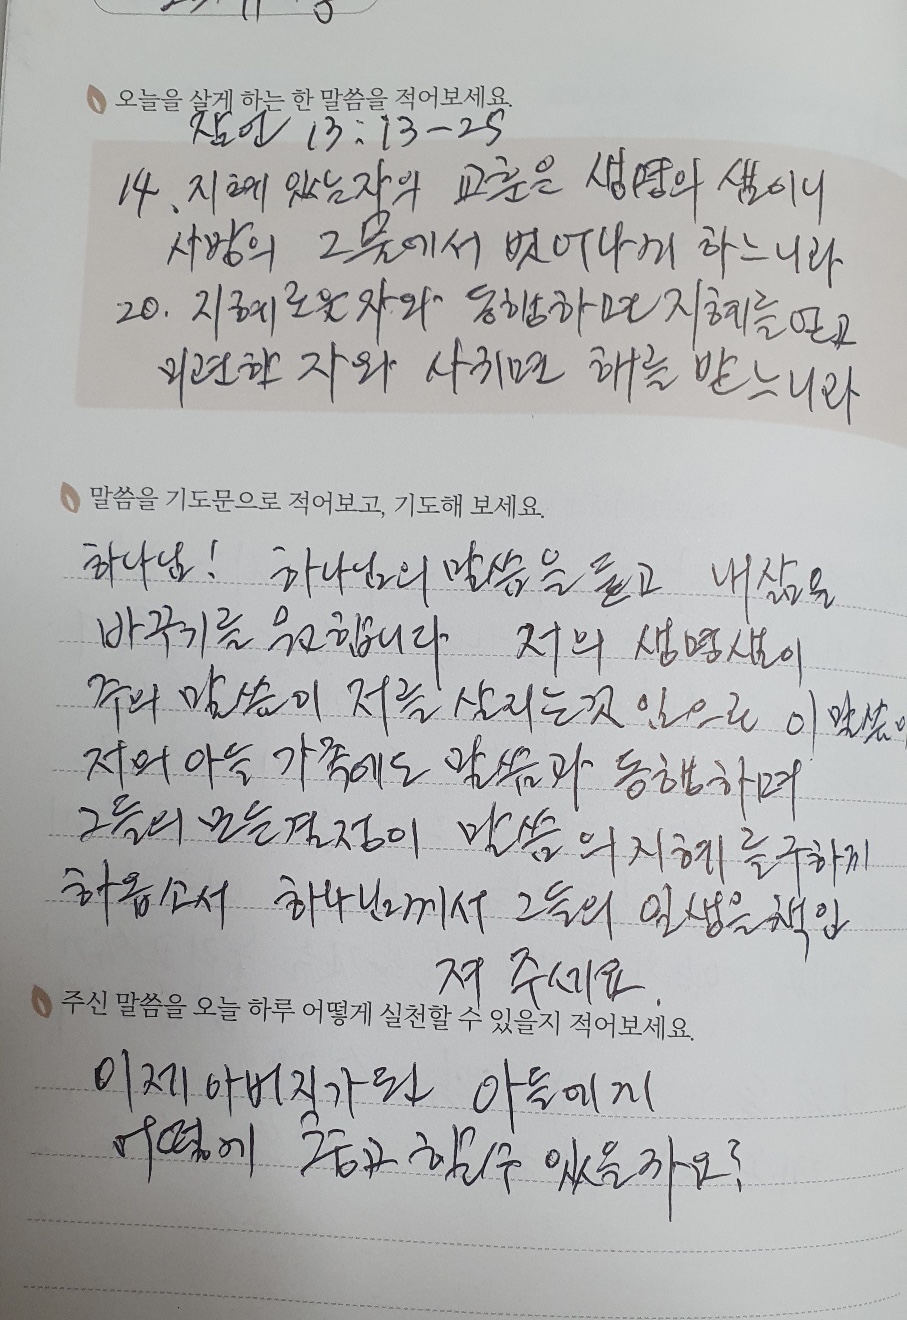 오늘을 살게 하는 한 말씀을 적어보세요.
잠언 13:13-25
14. 지혜 있는자의 교훈은 생명의 샘이니
사망의 그물에서 벗어나게 하느니라
20. 지혜로운 자와 동행하면 지혜를 얻고
미련한 자와 사귀면 해를 받느니라
말씀을 기도문으로 적어보고, 기도해 보세요.
하나님! 하나님의 말씀을 듣고 내 삶을
바꾸기를 원합니다 저의 생명샘이
주의 말씀이 저를 살리는것 임으로 이 말씀이
저의 아들 가족에도 말씀과 동행하며
그들의 모든결정이 말씀의 지혜를구하게
하옵소서 하나님께서 그들의 일생을책임
져 주세요.
주신 말씀을 오늘 하루 어떻게 실천할 수 있을지 적어보세요.
이제 아버지가된 아들에게
어떻게 충고 할수 있을까요?